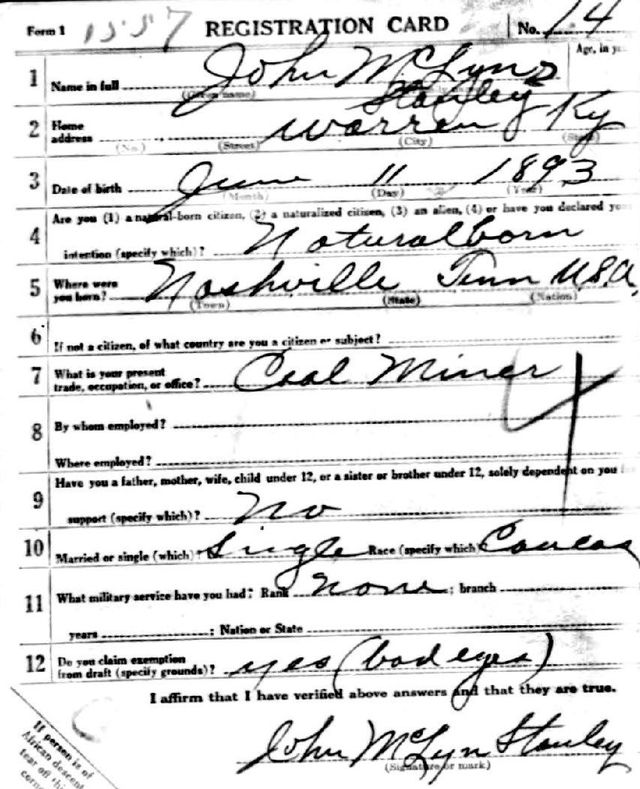 Form 1 1557 REGISTRATION CARD No. 14
Age, in
1 Name in full John McLyn
(Given name)
Stanley
2 Home address Warren Ky
(No.) (Street) (City) (State)
3 Date of birth June 11 1893
(Month) (Day) (Year)
4 Are you (1) a natural-born citizen, (2) a naturalized citizen, (3) an alien, (4) or have you declared
intention (specify which)? Naturalborn
5 Where were you born? Nashville Tenn U.S.A.
(Town) (State) (Nation)
6 If not a citizen, of what country are you a citizen or subject?
7 What is your present trade, occupation, or office? Coal Miner
8 By whom employed?
Where employed?
9 Have you a father, mother, wife, child under 12, or a sister or brother under 12, solely dependent on you
support (specify which)? No
10 Married or single (which)? Single Race (specify which) Caucas
11 What military service have you had? Rank none ; branch
years ; Nation or State
12 Do you claim exemption from draft (specify grounds)? yes (bad eyes)
I affirm that I have verified above answers and that they are true.
John McLyn Stanley
(Signature or mark)
If person is of
African descent
tear off this
corn